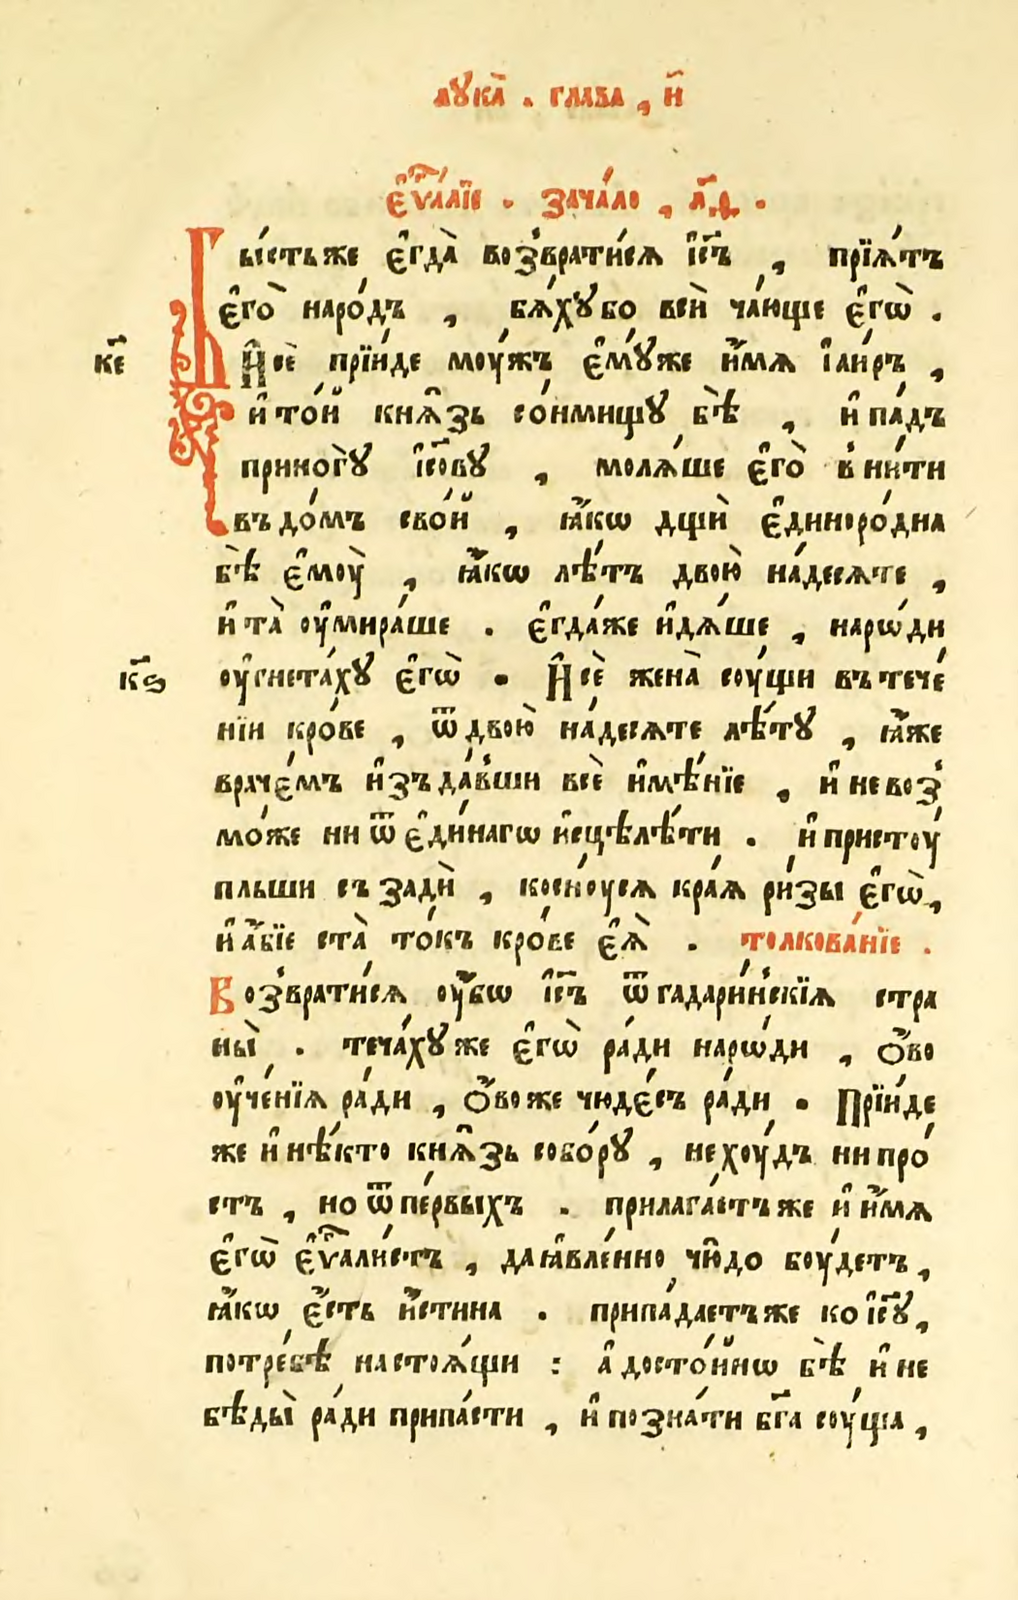 лꙋка̀ . глава , и҃
є҆ѵⷢ҇лїе . зача́ло , л҃ѳ .
Бы́стьже є҆гда̀ возврати́сѧ і҆с҃ъ , прїѧ́тъ
є҆го̀ наро́дъ , бѧ́хꙋбо вси̑ ча́юще є҆гѡ̀ .
к҃е
И҆сѐ прїи́де моу́жъ є҆мꙋ́же и҆́мѧ і҆аи́ръ ,
и҆ то́й кнѧ҃зь со́нмищꙋ бѣ̀ , и҆ па́дъ
приногꙋ̀ і҆с҃овꙋ , молѧ́ше є҆го̀ вни́ти
въ до́мъ сво́й , ꙗ҆́кѡ дщи̑ є҆диноро́дна
бѣ̀ є҆моу̀ , ꙗ҆́кѡ лѣ́тъ двою̀ на́десѧте ,
и҆ та̀ оу҆мира́ше . є҆гда́же и҆дѧ́ше , наро́ди
к҃ѕ
оу҆гнета́хꙋ є҆гѡ̀ . И҆сѐ жена̀ соу́щи въ тече́
нїи кро́ве , ѿ двою̀ на́десѧте лѣ́тꙋ , ꙗ҆́же
враче́мъ и҆зъ да́вши всѐ и҆мѣ́нїе , и҆ невоз
мо́же ни ѿ є҆ди́нагѡ и҆сцѣлѣ́ти . и҆ пристоу́
пльши съ зади̑ , косноу́сѧ кра́ѧ ри́зы є҆гѡ̀ ,
и҆ а҆́бїе ста̀ то́къ кро́ве є҆ѧ̀ . толкова́нїе .
Возврати́сѧ оу҆́бѡ і҆с҃ъ ѿ гадари́нскїѧ стра
ны̀ . теча́хꙋже є҆гѡ̀ ра́ди наро́ди , ѻ҆́во
оу҆че́нїѧ ра́ди , ѻ҆́воже чюде́съ ра́ди . Прїи́де
же и҆ нѣ́кто кнѧ҃зь собо́рꙋ , не хоу́дъ ни про́
стъ , но ѿ пе́рвыхъ . прилага́етъже и҆ и҆́мѧ
є҆гѡ̀ є҆ѵⷢ҇али́стъ , да ꙗ҆вле́нно чю̑до боу́детъ ,
ꙗ҆́кѡ є҆́сть и҆́стина . припа́даетъже ко і҆с҃ꙋ ,
потре́бѣ настоѧ́щи : а҆ досто́йнѡ бѣ̀ и҆ не
бѣды̀ ра́ди припа́сти , и҆ позна́ти бг҃а соу́ща ,